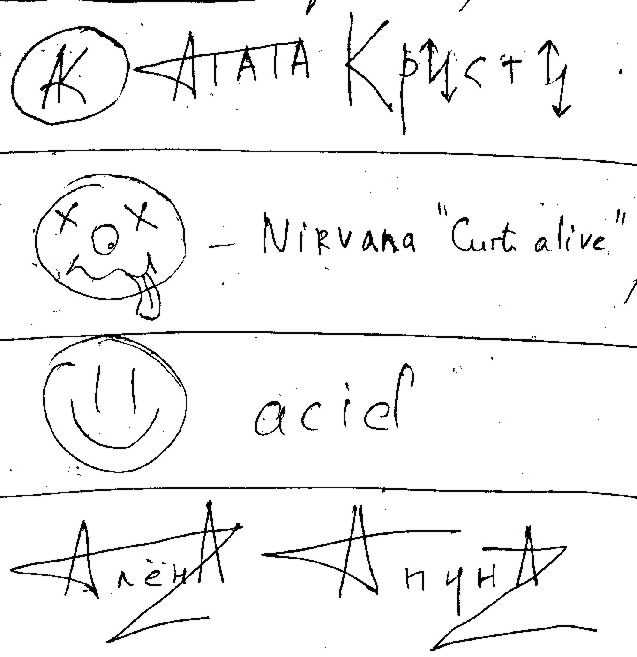 АК АГАТА Кристи
Nirvana "Curt alive"
acid
Алёна Апина